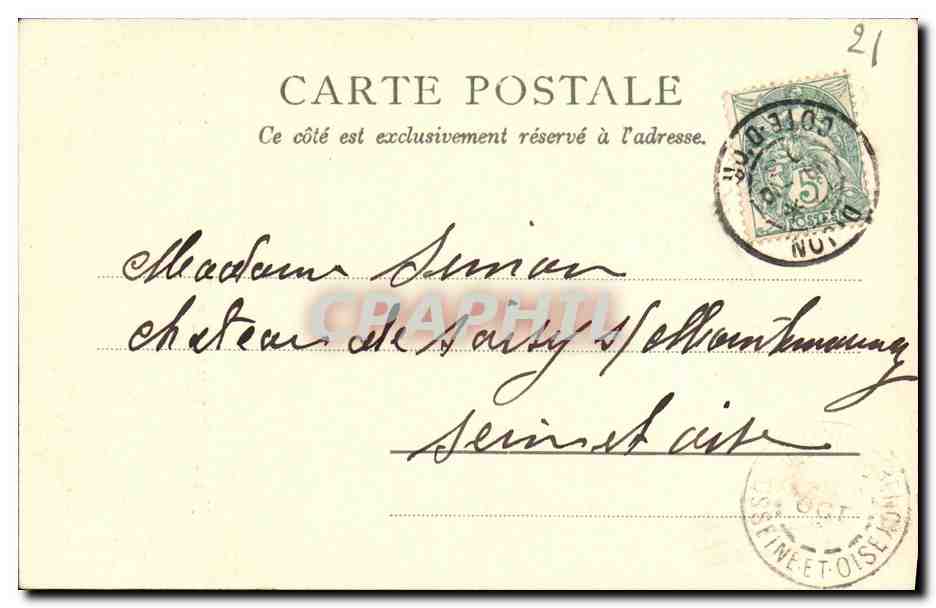 21
CARTE POSTALE
Ce côté est exclusivement réservé à l'adresse.
5c
POSTES
DIJON
COTE-D'OR
Madame Simon
CPAPHIL
chateau de soisy s/ Montmorency
seine et oise
OCT
SEINE-ET-OISE